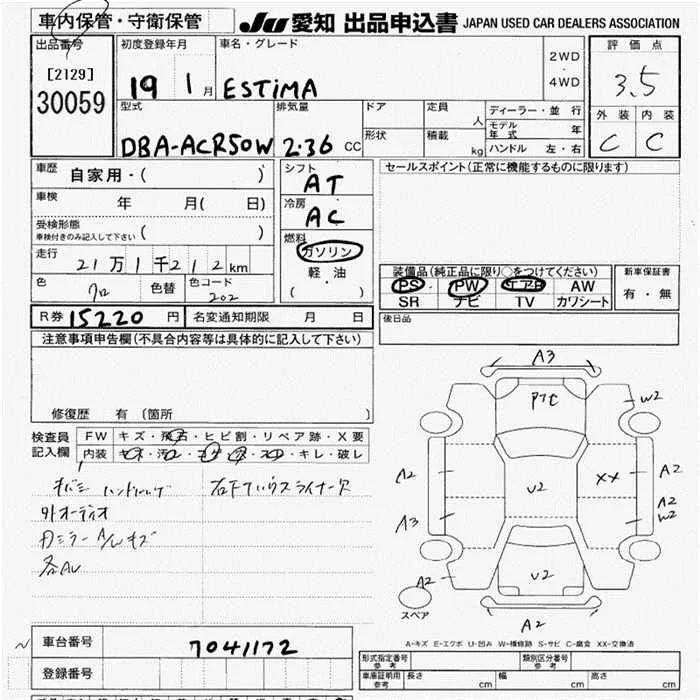 車内保管・守衛保管 JU 愛知 出品申込書 JAPAN USED CAR DEALERS ASSOCIATION
出品番号 初度登録年月 車名・グレード 評価点
[2129] 2WD
30059 19 1月 ESTIMA 4WD 3.5
型式 排気量 ドア 定員 人 ディーラー・並行 外装 内装
モデル年式 年
DBA-ACR50W 2.36 CC 形状 積載 kg ハンドル 左・右 C C
車歴 自家用・( ) シフト AT セールスポイント(正常に機能するものに限ります)
車検 年 月( 日) 冷房 AC
受検形態
車検付きのみ記入して下さい ( ) 燃料
走行 21万1千212km ガソリン 装備品(純正品に限り○をつけてください) 新車保証書
軽・油 PS PW エアB AW 有・無
色 クロ 色替 色コード 202 ( ) SR ナビ TV カワシート
R券 15220 円 名変通知期限 月 日 後日品
注意事項申告欄(不具合内容等は具体的に記入して下さい)
修復歴 有 〔箇所 〕
検査員 FW キズ・飛石・ヒビ割・リペア跡・X要
記入欄 内装 キズ・汚れ・コゲ・穴・スレ・キレ・破レ
ハンドル
外オーディオ
ミラーA/Wキズ
各AU
A3
PTC W2
A2 U2 XX A2
A2
A3 W2
U2
A2
スペア A2
A-キズ E-エクボ U-凹み W-補修跡 S-サビ C-腐食 XX-交換済
車台番号 7041172
形式指定番号 参考 類別区分番号 参考
登録番号 車庫証明用 参考 長さ cm 幅 cm 高さ cm